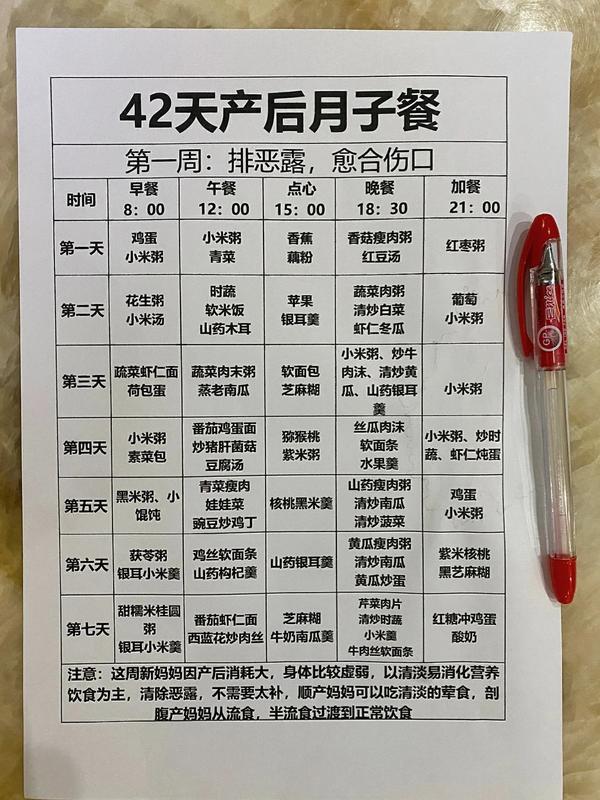 42天产后月子餐
第一周：排恶露，愈合伤口
时间 早餐 8：00 午餐 12：00 点心 15：00 晚餐 18：30 加餐 21：00
第一天
鸡蛋
小米粥
小米粥
青菜
香蕉
藕粉
香菇瘦肉粥
红豆汤
红枣粥
第二天
花生粥
小米汤
时蔬
软米饭
山药木耳
苹果
银耳羹
蔬菜肉粥
清炒白菜
虾仁冬瓜
葡萄
小米粥
第三天
蔬菜虾仁面
荷包蛋
蔬菜肉末粥
蒸老南瓜
软面包
芝麻糊
小米粥、炒牛
肉沫、清炒黄
瓜、山药银耳
羹
小米粥
第四天
小米粥
素菜包
番茄鸡蛋面
炒猪肝菌菇
豆腐汤
猕猴桃
紫米粥
丝瓜肉沫
软面条
水果羹
小米粥、炒时
蔬、虾仁炖蛋
第五天
黑米粥、小
馄饨
青菜瘦肉
娃娃菜
豌豆炒鸡丁
核桃黑米羹
山药瘦肉粥
清炒南瓜
清炒菠菜
鸡蛋
小米粥
第六天
茯苓粥
银耳小米羹
鸡丝软面条
山药枸杞羹
山药银耳羹
黄瓜瘦肉粥
清炒南瓜
黄瓜炒蛋
紫米核桃
黑芝麻糊
第七天
甜糯米桂圆
粥
银耳小米羹
番茄虾仁面
西蓝花炒肉丝
芝麻糊
牛奶南瓜羹
芹菜肉片
清炒时蔬
小米羹
牛肉丝软面条
红糖冲鸡蛋
酸奶
注意：这周新妈妈因产后消耗大，身体比较虚弱，以清淡易消化营养
饮食为主，清除恶露，不需要太补，顺产妈妈可以吃清淡的荤食，剖
腹产妈妈从流食，半流食过渡到正常饮食